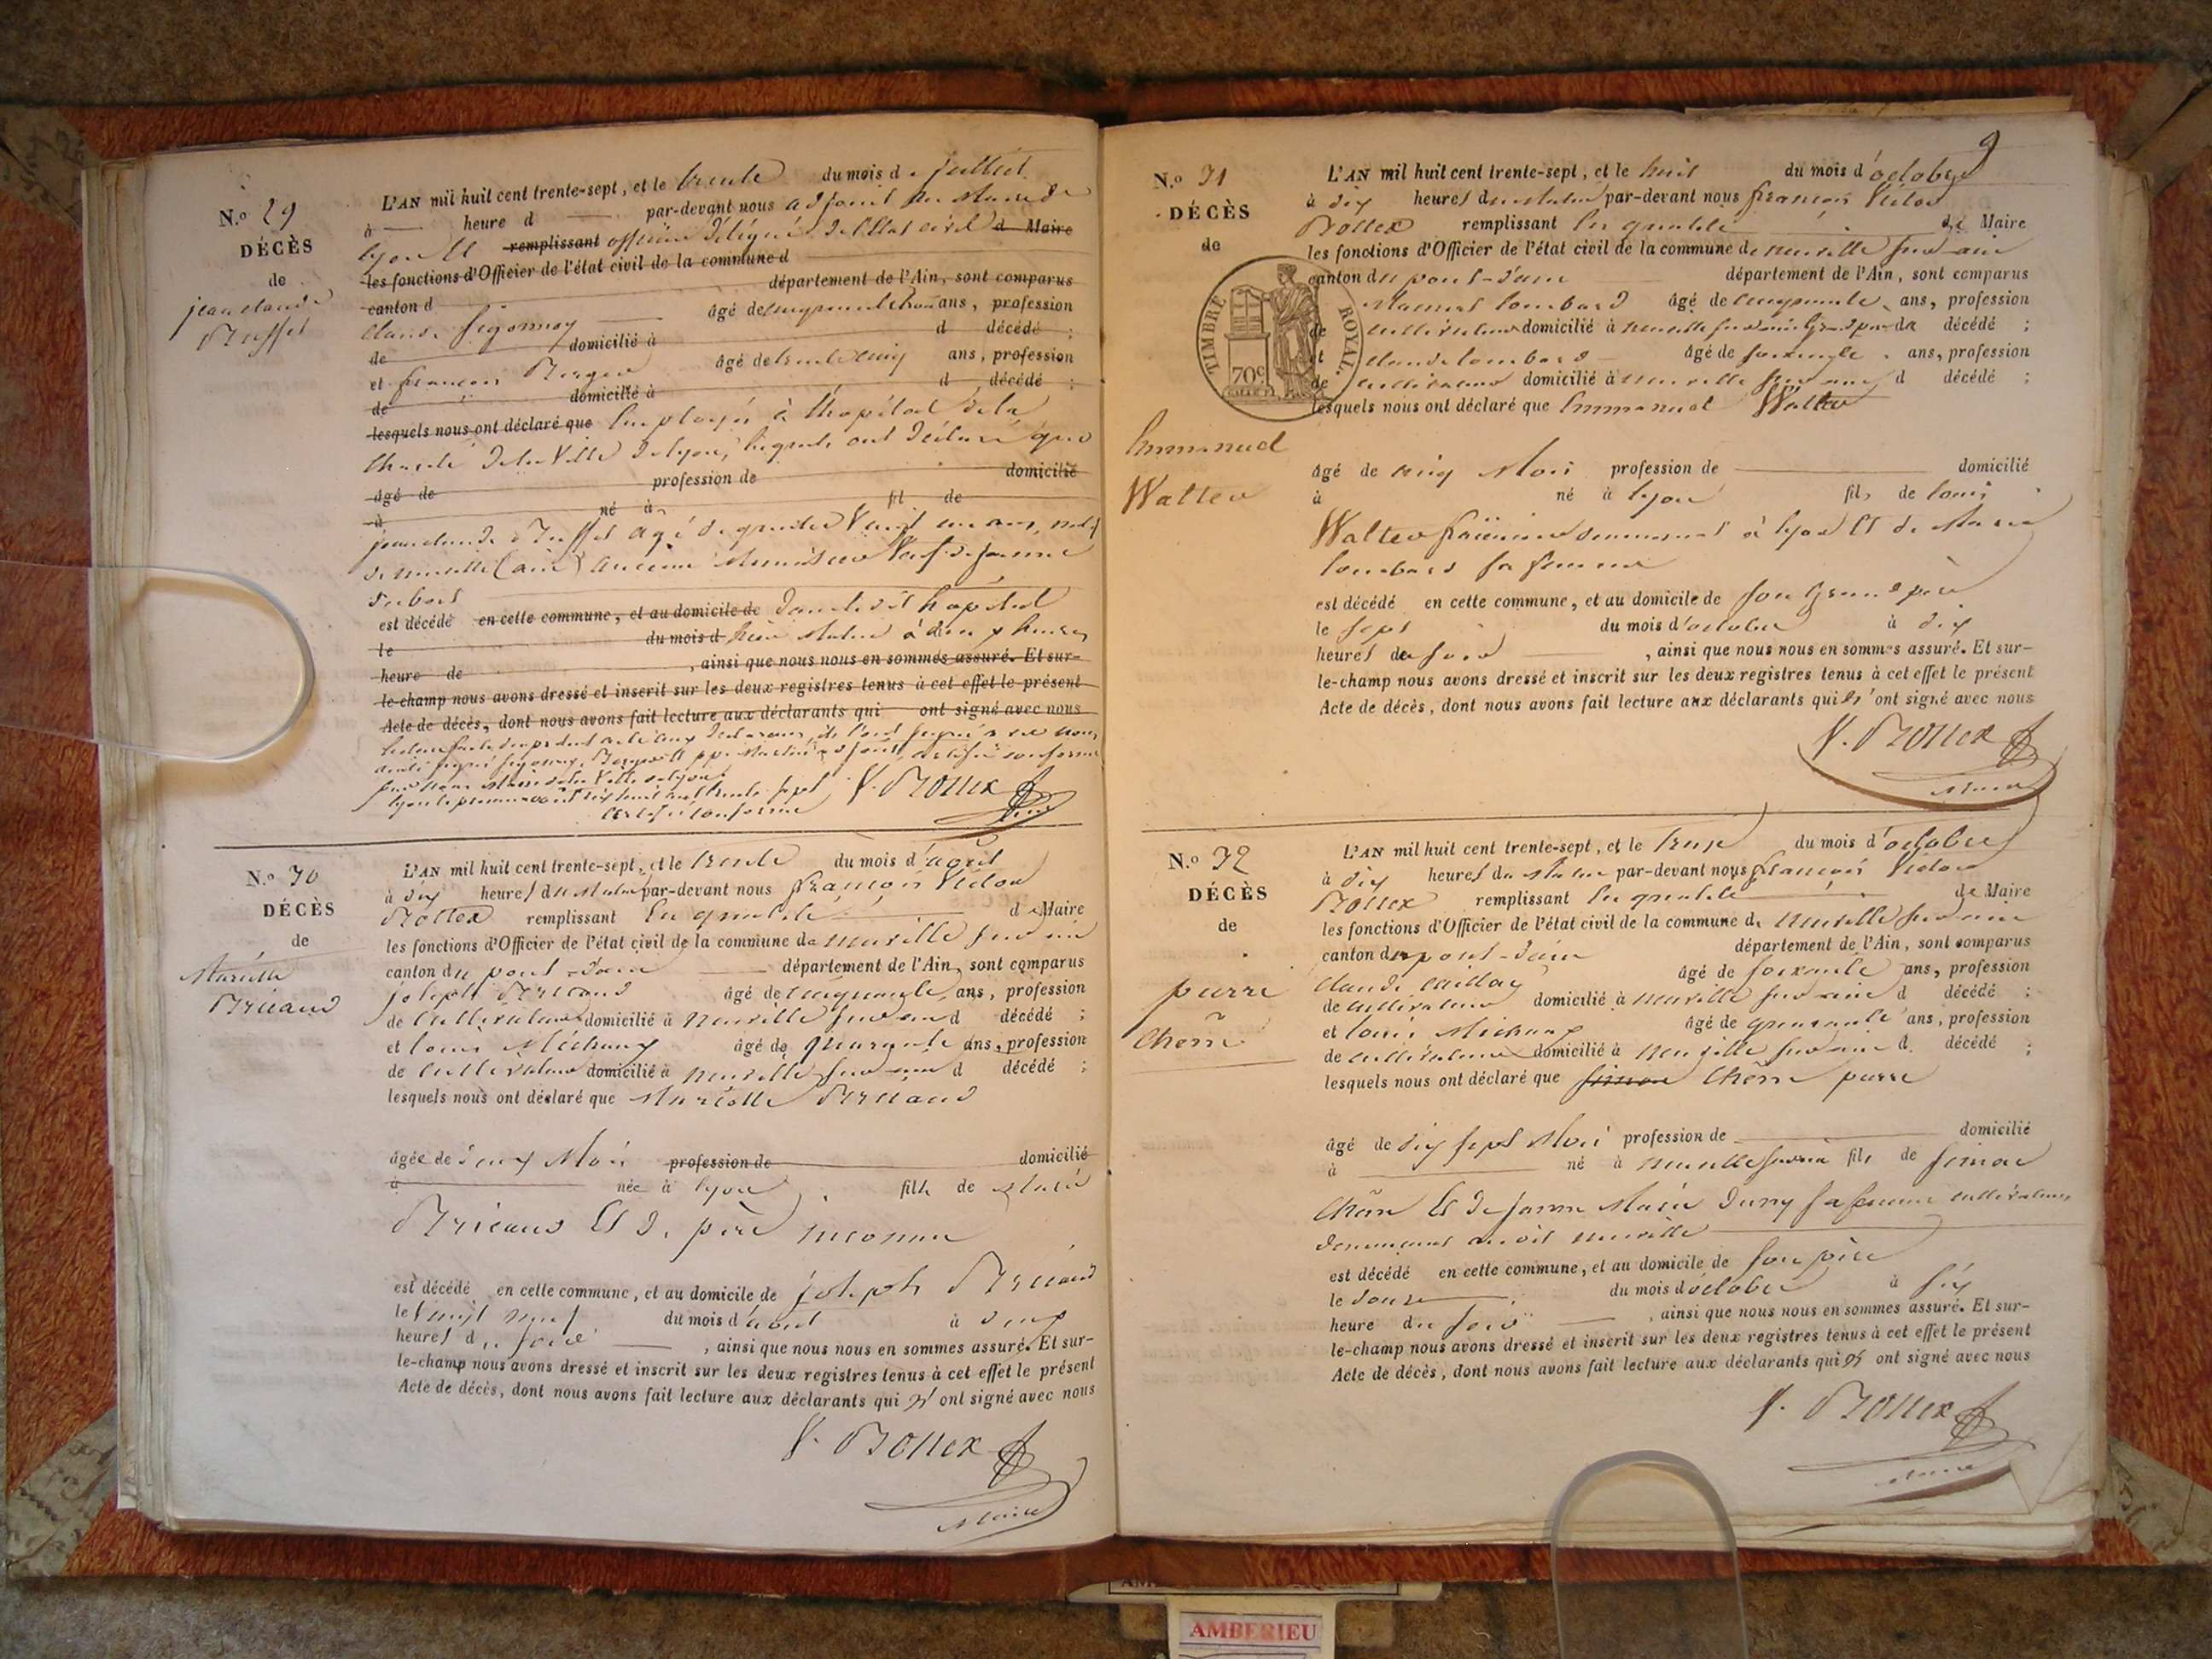 N.o 29
DÉCÈS
de
jean claude
L'AN mil huit cent trente-sept, et le trente du mois de juillet
à heure d par-devant nous adjoint du Maire de
lyon et remplissant officier délégué de l'état civil d Maire
les fonctions d'Officier de l'état civil de la commune d
canton d département de l'Ain, sont comparus
Claude âgé de ans, profession
de domicilié à d décédé ;
et françois âgé de trente cinq ans, profession
de domicilié à d décédé ;
lesquels nous ont déclaré que Employés à l'hopital de la
Charité de la Ville de lyon, lesquels ont déclaré que
âgé de profession de domicilié
à né à fil de
jean claude agé de quatre Vingt un ans, natif
de neuville (ain) ancien Veuf de jeanne
dubost
est décédé en cette commune, et au domicile de dans le dit hopital
le du mois d hier Matin à deux heures
heure de , ainsi que nous nous en sommes assuré. Et sur-
le-champ nous avons dressé et inscrit sur les deux registres tenus à cet effet le présent
Acte de décès, dont nous avons fait lecture aux déclarants qui ont signé avec nous
certifié conforme
N.o 30
DÉCÈS
de
Mariette
Bricaud
L'AN mil huit cent trente-sept, et le trente du mois d'août
à dix heures du Matin par-devant nous françois Victor
remplissant en qualité de Maire
les fonctions d'Officier de l'état civil de la commune de neuville sur ain
canton du pont-d'ain département de l'Ain, sont comparus
joseph Bricaud âgé de cinquante ans, profession
de cultivateur domicilié à neuville sur ain d décédé ;
et louis Michaux âgé de quarante ans, profession
de cultivateur domicilié à neuville sur ain d décédé ;
lesquels nous ont déclaré que Mariette Bricaud
âgée de deux Mois profession de domicilié
à née à lyon fille de Marie
Bricaud Et de père inconnu
est décédé en cette commune, et au domicile de joseph Bricaud
le vingt neuf du mois d'août à deux
heures du soir , ainsi que nous nous en sommes assuré. Et sur-
le-champ nous avons dressé et inscrit sur les deux registres tenus à cet effet le présent
Acte de décès, dont nous avons fait lecture aux déclarants qui n'ont signé avec nous
Maire
9
N.o 31
DÉCÈS
de
TIMBRE ROYAL.
70c
Emmanuel
Walter
L'AN mil huit cent trente-sept, et le huit du mois d'octobre
à dix heures du Matin par-devant nous françois Victor
remplissant en qualité de Maire
les fonctions d'Officier de l'état civil de la commune de neuville sur ain
canton du pont-d'ain département de l'Ain, sont comparus
lombard âgé de cinquante ans, profession
de cultivateur domicilié à neuville sur ain Grand père du décédé ;
et claude lombard âgé de soixante ans, profession
de cultivateur domicilié à neuville sur ain d décédé ;
lesquels nous ont déclaré que Emmanuel Walter
âgé de cinq Mois profession de domicilié
à né à lyon fils de louis
Walter demeurant à lyon Et de Marie
lombard sa femme
est décédé en cette commune, et au domicile de son Grand père
le sept du mois d'octobre à dix
heures du soir , ainsi que nous nous en sommes assuré. Et sur-
le-champ nous avons dressé et inscrit sur les deux registres tenus à cet effet le présent
Acte de décès, dont nous avons fait lecture aux déclarants qui n'ont signé avec nous
Maire
N.o 32
DÉCÈS
de
pierre
Chêne
L'AN mil huit cent trente-sept, et le treize du mois d'octobre
à dix heures du Matin par-devant nous françois Victor
remplissant en qualité de Maire
les fonctions d'Officier de l'état civil de la commune de neuville sur ain
canton du pont-d'ain département de l'Ain, sont comparus
Claude âgé de soixante ans, profession
de cultivateur domicilié à neuville sur ain d décédé ;
et louis Michaux âgé de quarante ans, profession
de cultivateur domicilié à neuville sur ain d décédé ;
lesquels nous ont déclaré que simon Chêne pierre
âgé de dix sept Mois profession de domicilié
à né à neuville sur ain fils de simon
Chêne Et de jeanne Marie sa femme cultivateurs
demeurant au dit neuville
est décédé en cette commune, et au domicile de son père
le douze du mois d'octobre à six
heure du soir , ainsi que nous nous en sommes assuré. Et sur-
le-champ nous avons dressé et inscrit sur les deux registres tenus à cet effet le présent
Acte de décès, dont nous avons fait lecture aux déclarants qui n'ont signé avec nous
Maire
AMBERIEU